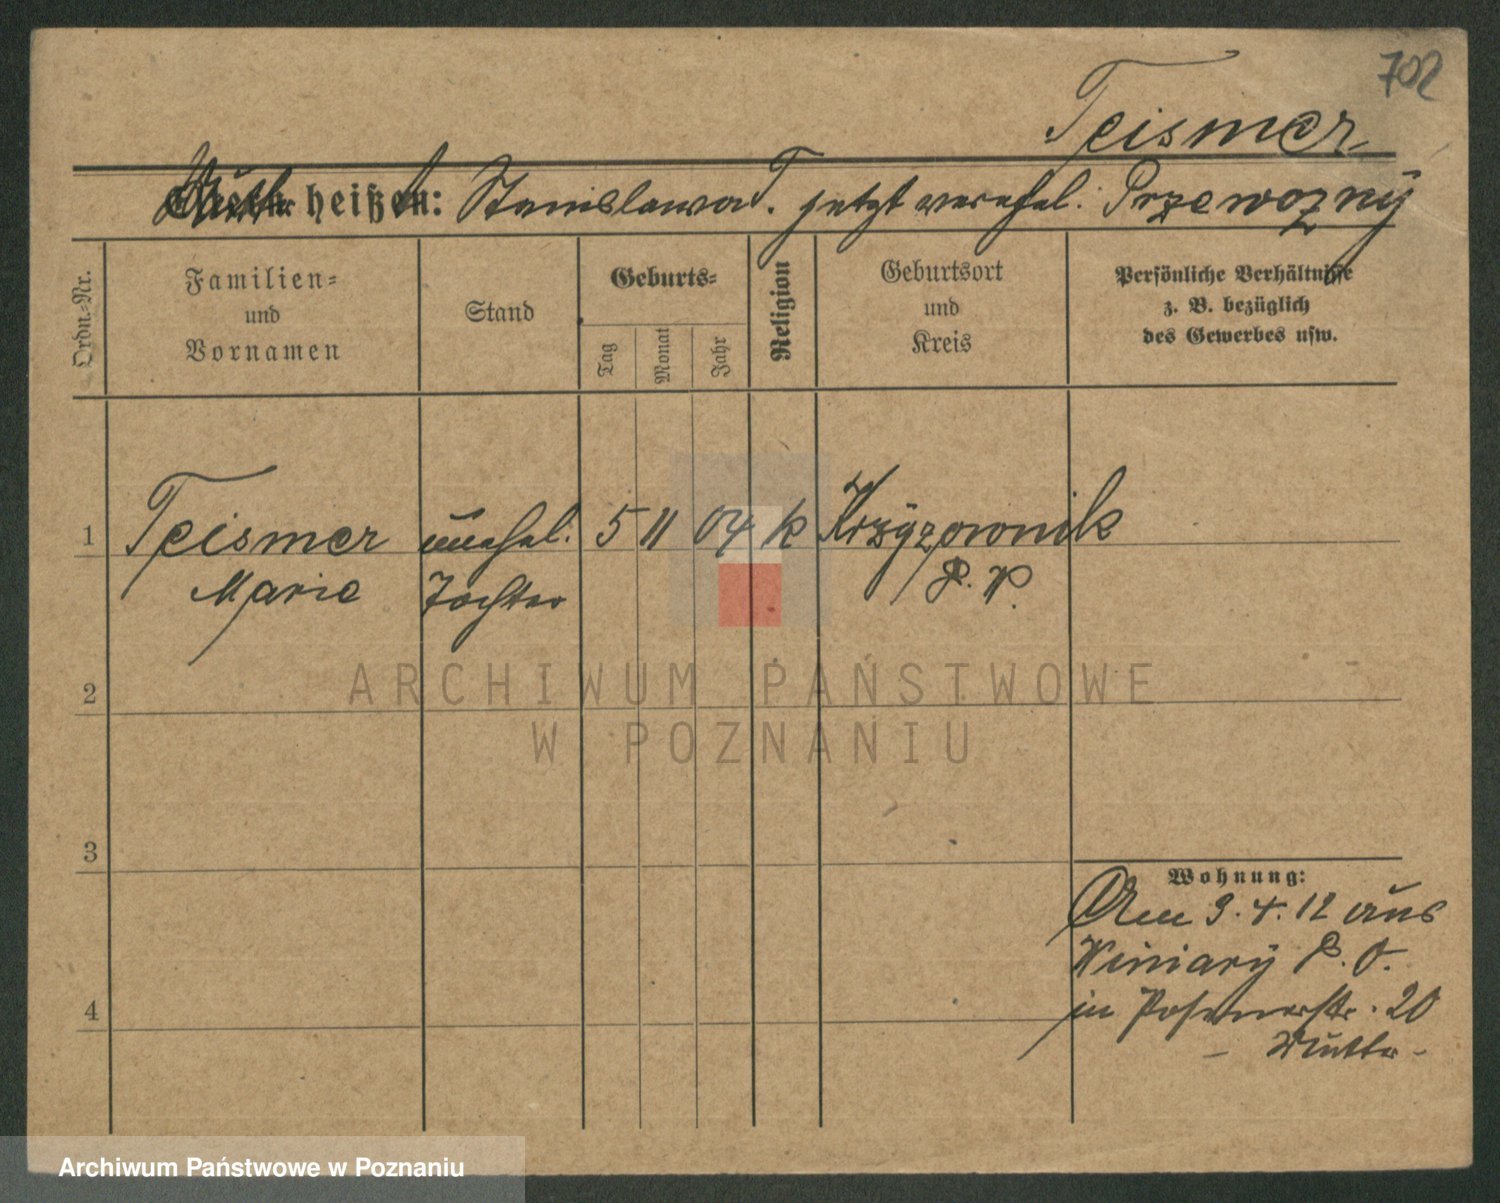 702
Teismer
Mutter heißt: Stanislawa T. jetzt verehel. Przewozny
Ordn.-Nr.
Familien-
und
Vornamen
Stand
Geburts-
Tag
Monat
Jahr
Religion
Geburtsort
und
Kreis
Persönliche Verhältnisse
z. B. bezüglich
des Gewerbes usw.
1 Teismer unehel. 5 11 04 k Krzyzownik
Marie Tochter P. W.
2
3
Wohnung:
Am 9.4.12 aus
Winiary P. O.
in Posenerstr. 20
- Mutter -
4
ARCHIWUM PAŃSTWOWE
W POZNANIU
Archiwum Państwowe w Poznaniu